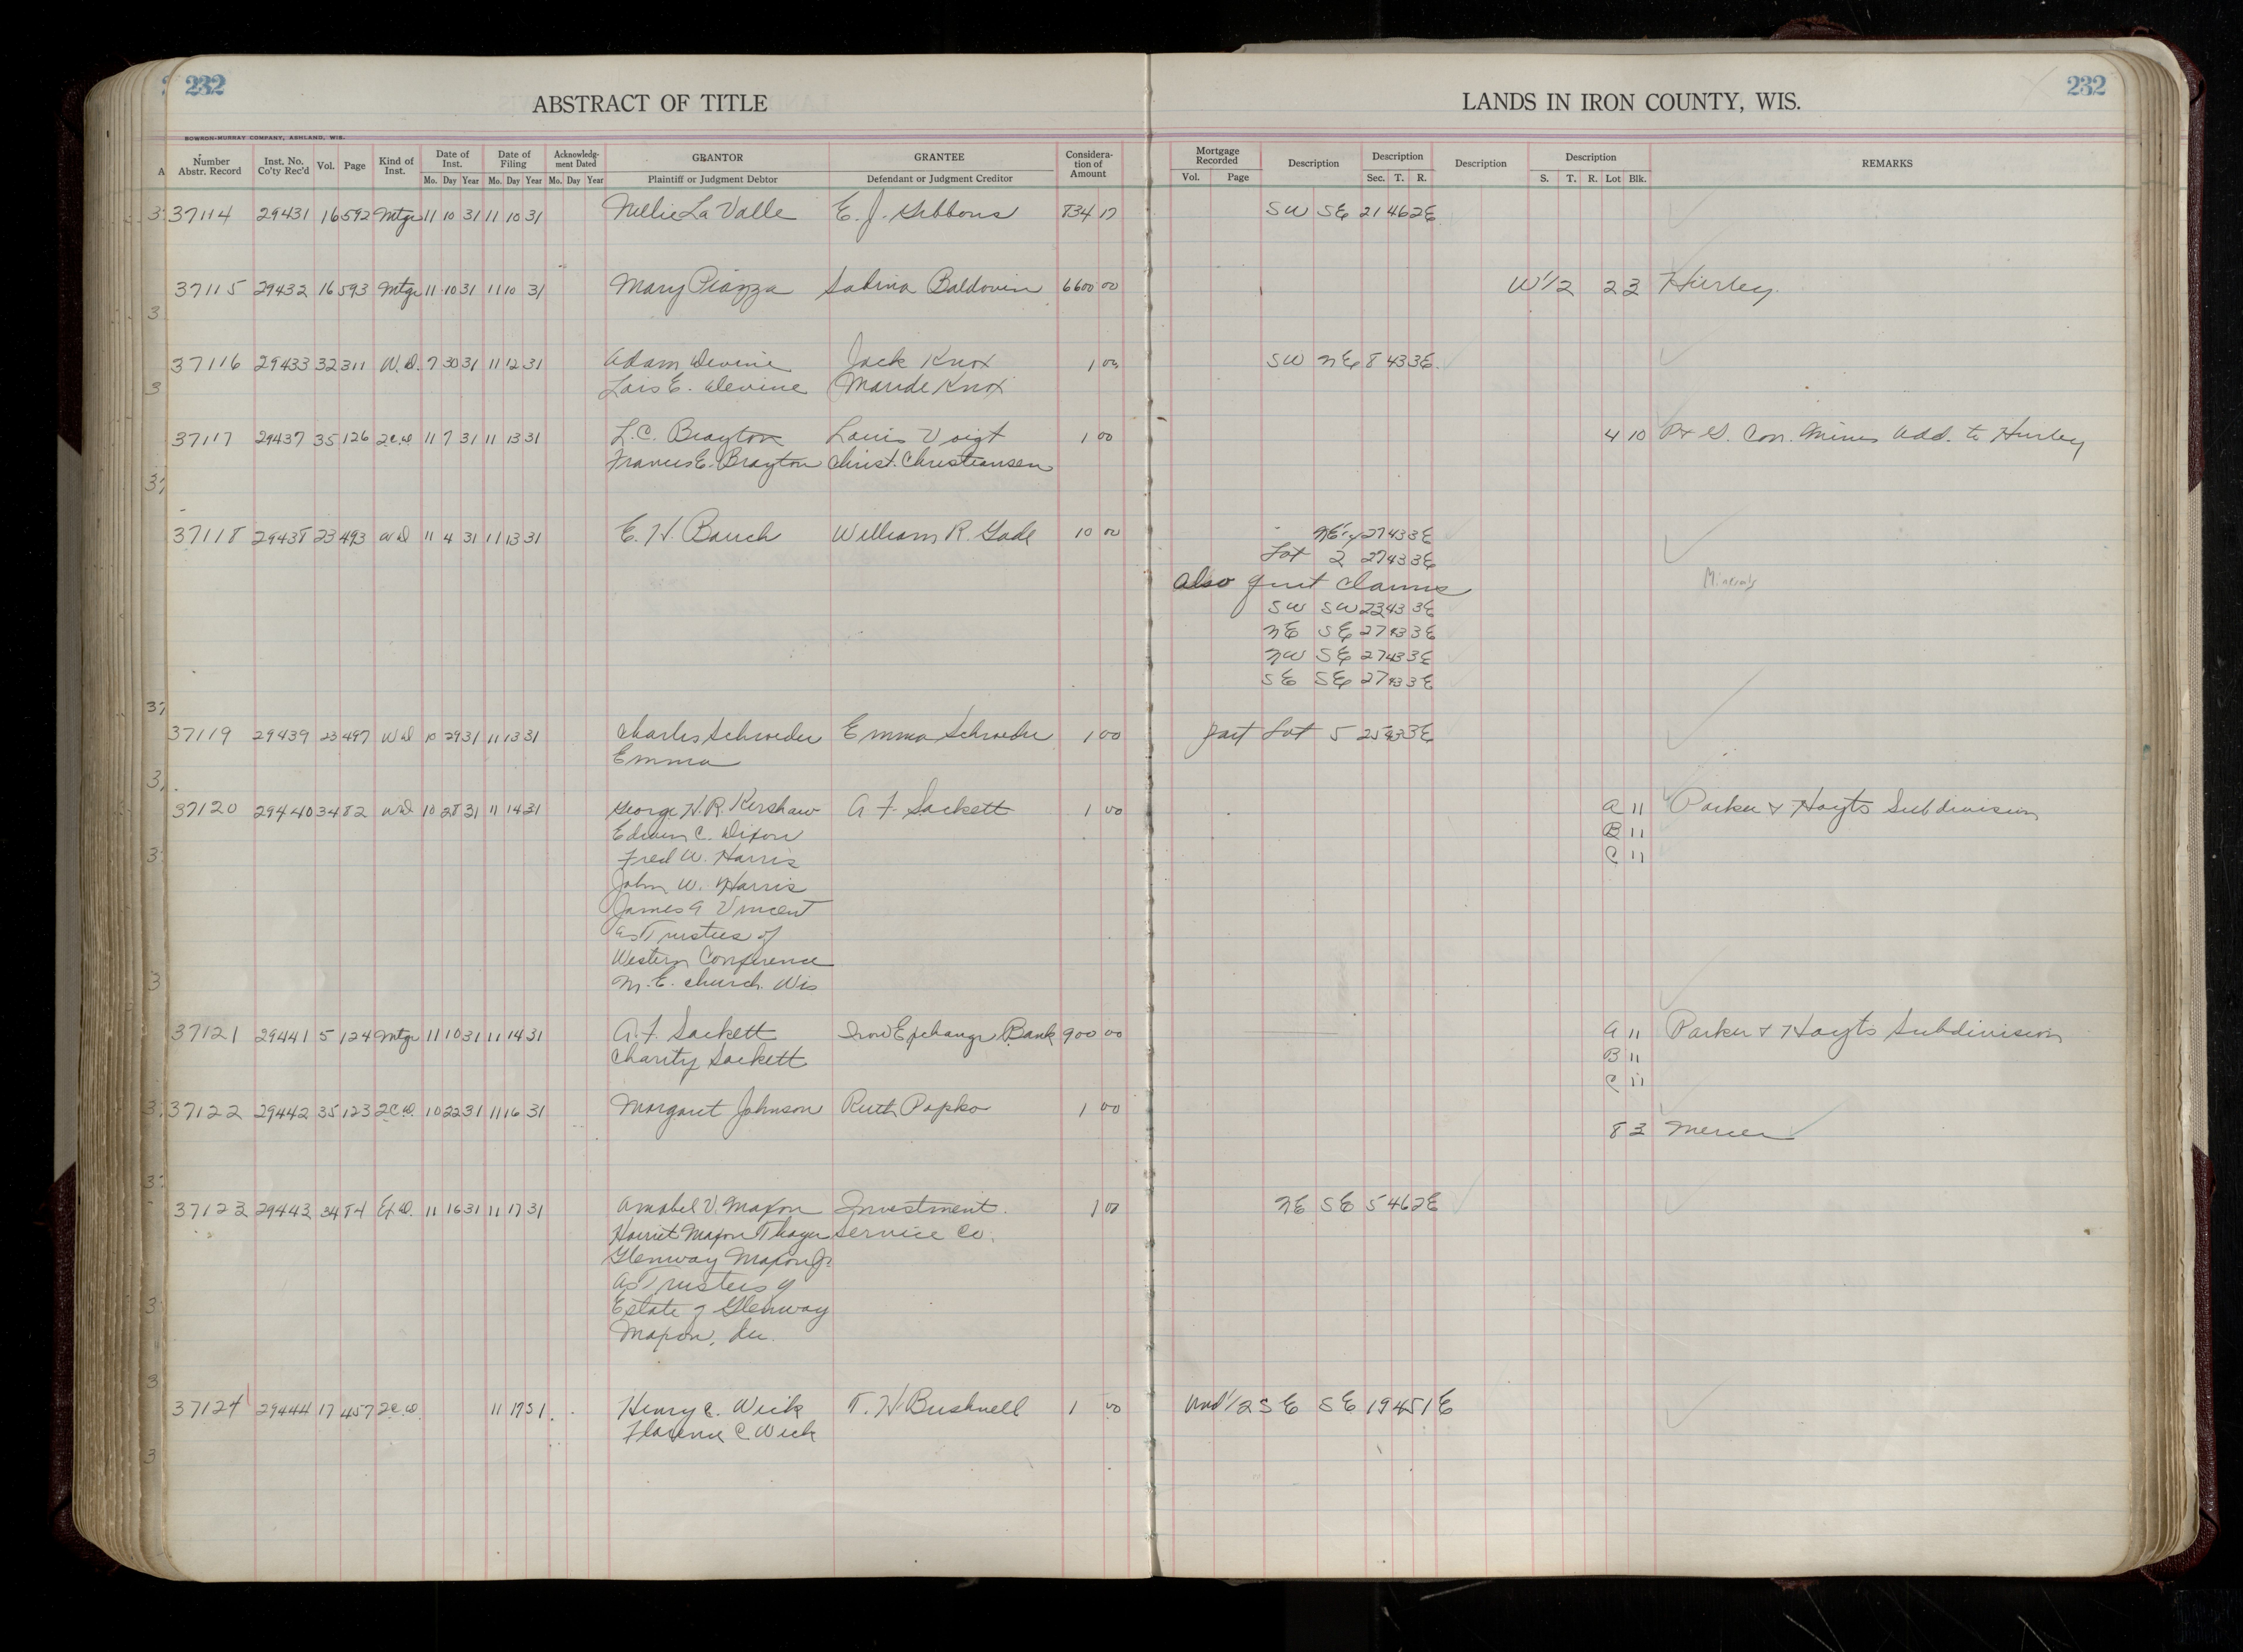 232
232
ABSTRACT OF TITLE
LANDS IN IRON COUNTY, WIS.
BOWRON-MURRAY COMPANY, ASHLAND, WIS.
Number Abstr. Record | Inst. No. Co'ty Rec'd | Vol. | Page | Kind of Inst. | Date of Inst. Mo. Day Year | Date of Filing Mo. Day Year | Acknowledgment Dated Mo. Day Year | GRANTOR Plaintiff or Judgment Debtor | GRANTEE Defendant or Judgment Creditor | Consideration of Amount | Mortgage Recorded Vol. Page | Description | Description Sec. T. R. | Description | Description S. T. R. Lot Blk. | REMARKS
37114 29431 16 592 Mtge 11 10 31 11 10 31 Nellie La Valle E. J. Gibbons 834 17 SW SE 21 46 2E
37115 29432 16 593 Mtge 11 10 31 11 10 31 Mary Piazza Sabina Baldovin 6600 00 W 1/2 2 23 Hurley
37116 29433 32 311 W.D. 7 30 31 11 12 31 Adam Devine Jack Knox 1 00 SW NE 8 43 3E
Lois E. Devine Maude Knox
37117 29437 35 126 2.C.D 11 7 31 11 13 31 L.C. Brayton Louis Voigt 1 00 4 10 Con. Mines Add. to Hurley
Frances E. Brayton Christ. Christiansen
37118 29438 23 493 WD 11 4 31 11 13 31 E. H. Bauch William R. Gade 10 00 27 43 3E
Lot 2 27 43 3E
also quit claims
Minerals
SW SW 23 43 3E
NE SE 27 43 3E
NW SE 27 43 3E
SE SE 27 43 3E
37119 29439 23 497 WD 10 29 31 11 13 31 Charles Schroeder Emma Schroeder 1 00 part Lot 5 25 43 3E
Emma
37120 29440 34 82 WD 10 28 31 11 14 31 George H.R. Kershaw A F. Sackett 1 00 A 11 Parker & Hoyts Subdivision
Edwin C. Dixon B 11
Fred W. Harris C 11
John W. Harris
James A Vincent
as Trustees of
Western Conference
M. E. church. Wis
37121 29441 5 124 Mtge 11 10 31 11 14 31 A. F. Sackett Iron Exchange Bank 900 00 A 11 Parker & Hoyts Subdivision
Charity Sackett B 11
C 11
37122 29442 35 123 2C.D. 10 22 31 11 16 31 Margaret Johnson Ruth Popko 1 00
8 3 Mercer
37123 29443 34 84 Ex D. 11 16 31 11 17 31 Anabel V. Maxon Investment 1 00 NE SE 5 46 2E
Harriet Maxon Thayer Service Co.
Glenway Maxon Jr
as Trustees of
Estate of Glenway
Maxon,
37124 29444 17 457 2C.D. 11 17 31 Henry C. Weik T. H Bushnell 1 00 Und 1/2 SE SE 19 45 1E
Florence C Weik